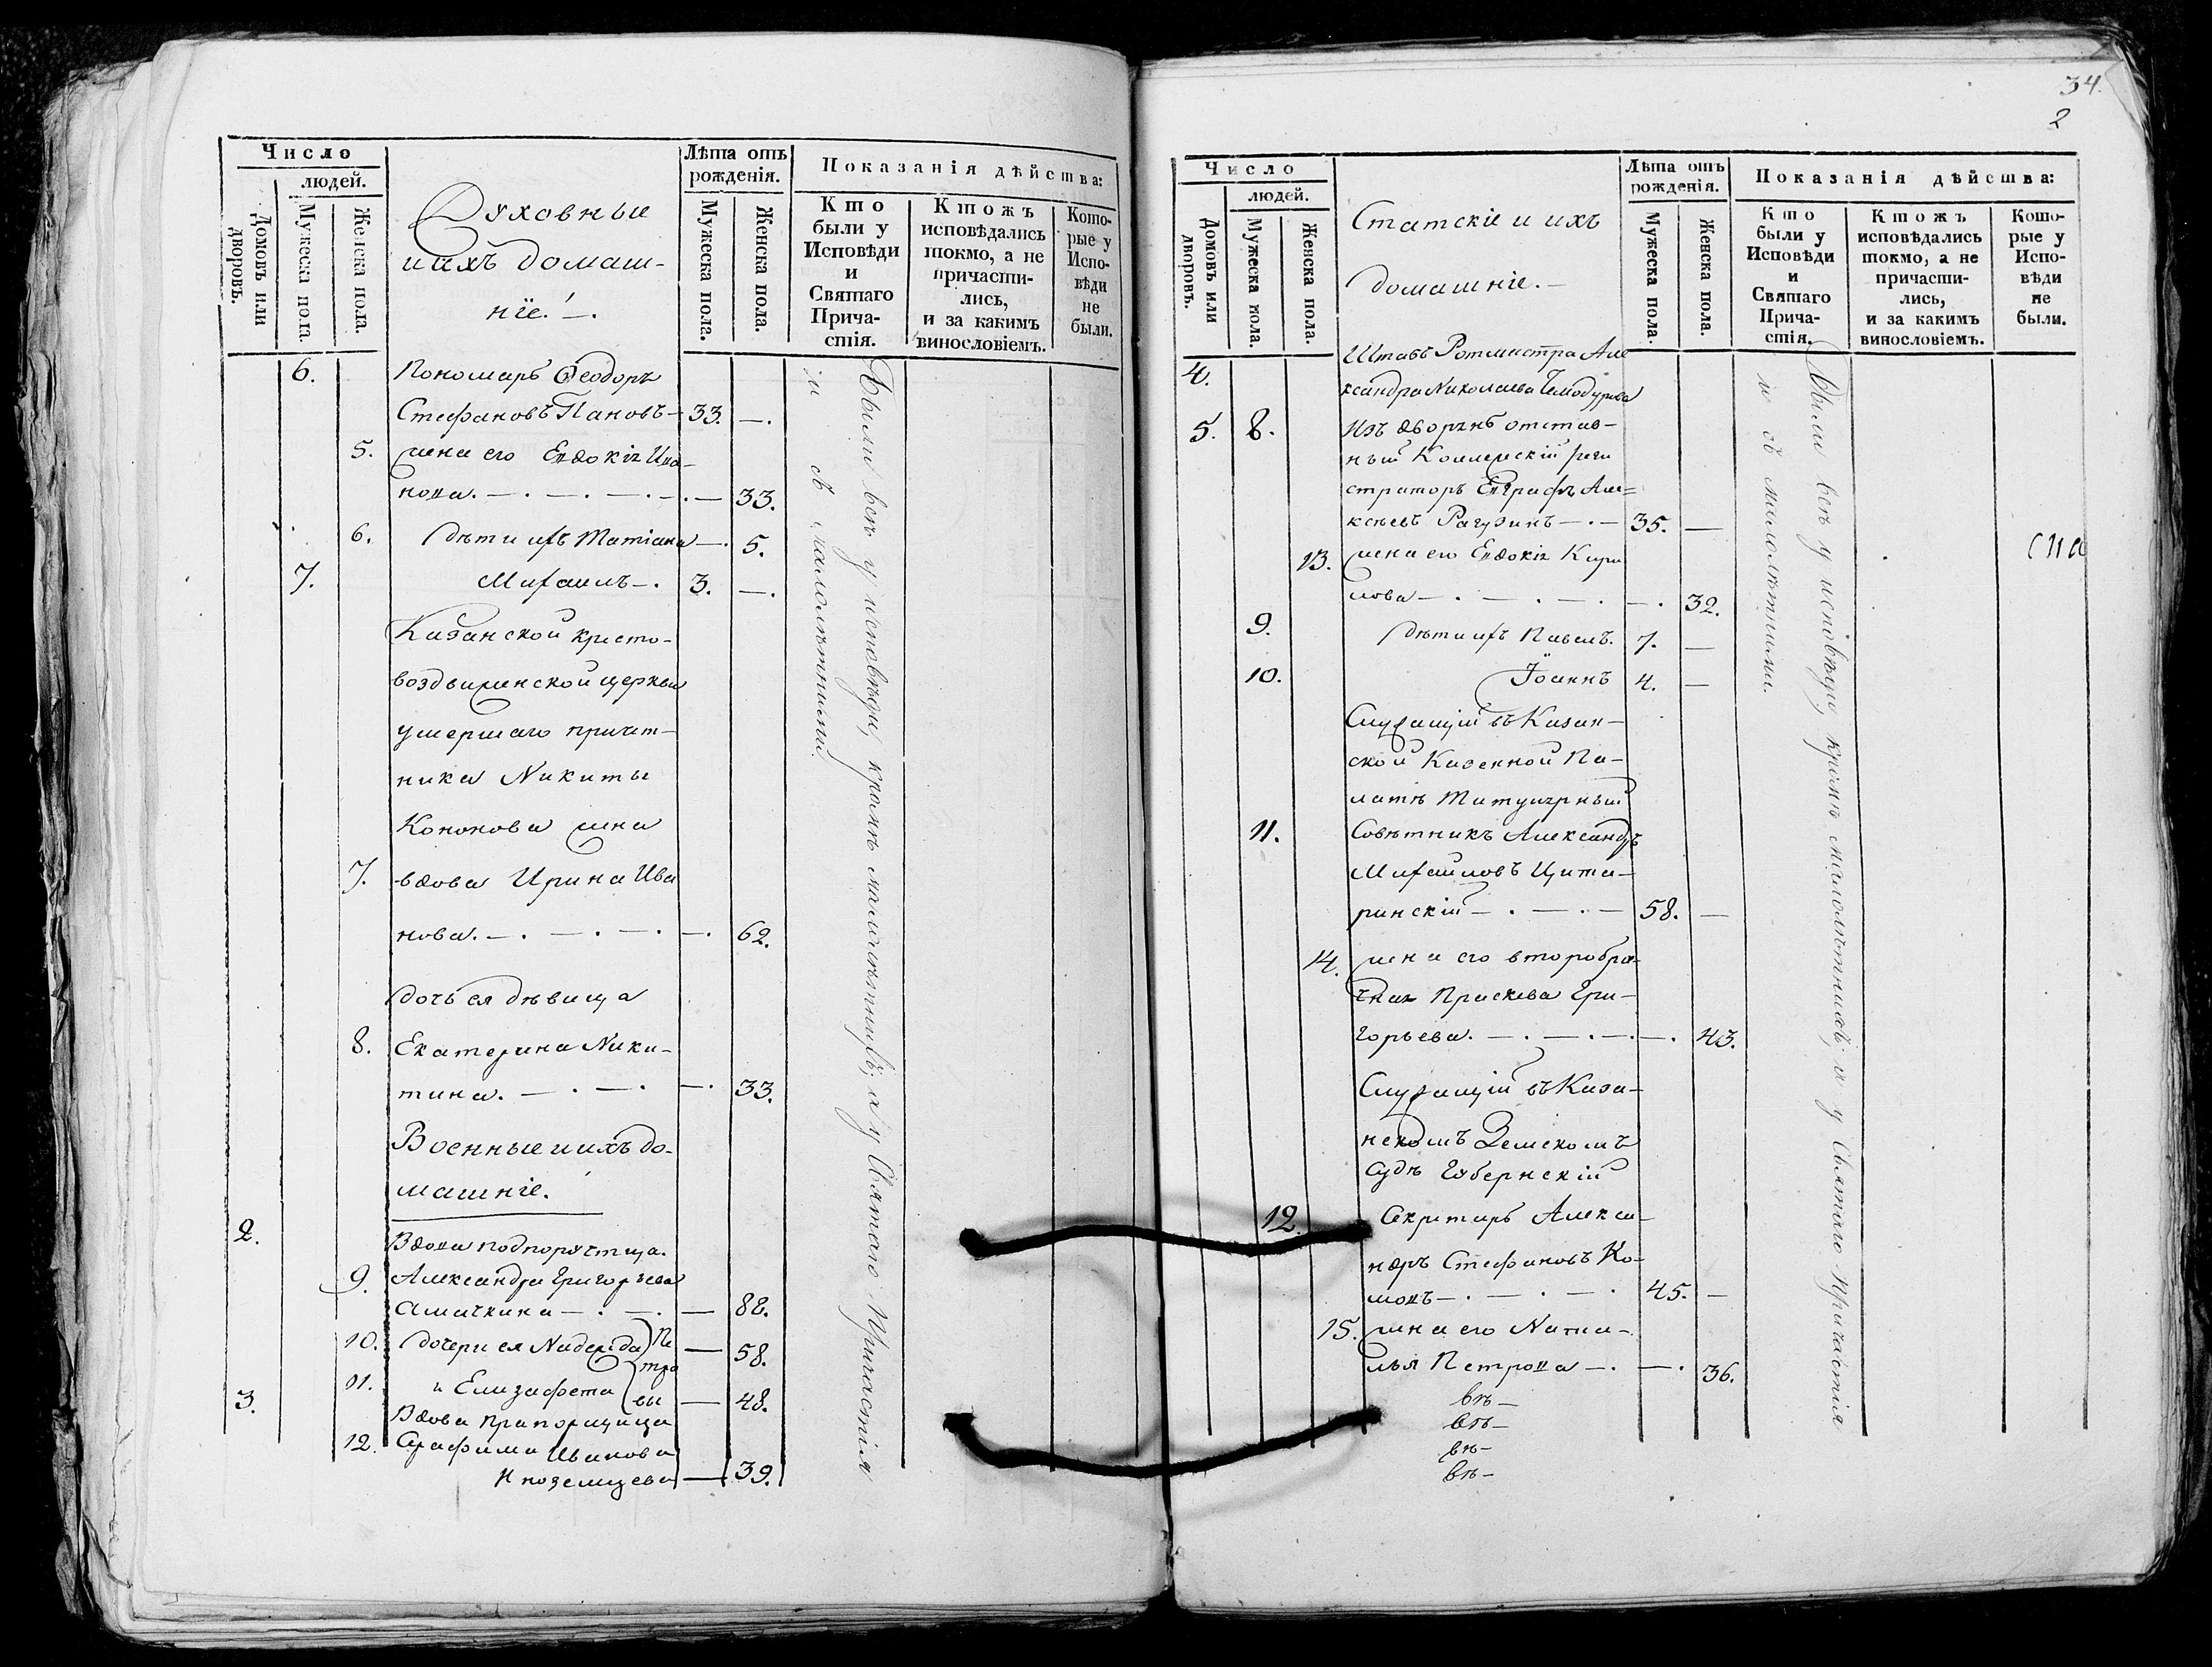 Число
людей.
Домовъ или дворовъ.
Мужеска пола.
Женска пола.
Духовные
и ихъ домаш-
нiе. —.
Лѣта отъ рожденiя.
Мужеска пола.
Женска пола.
Показанiя дѣйства:
Кто были у Исповѣди и Святаго Прича-стiя.
Ктожъ исповѣдались токмо, а не причасти-лись, и за какимъ винословiемъ.
Кото-рые у Испо-вѣди не были.
6. Пономарь Ѳеодоръ
Стефановъ Пановъ — 33. —.
5. жена его Евдокiя Ива-
нова. — . — . — . — 33.
6. Дѣти ихъ Татiана — . 5.
7. Михаилъ — . 3. —.
Казанской кресто-
воздвиженской церкви
умершаго причет-
ника Никиты
Кононова жена
7. вдова Ирина Ива
нова. — . — . — . — . 62.
дочь ея дѣвица
8. Екатерина Ники-
тина. — . — . — . 33.
Военные и ихъ до-
машнiе.
2. Вдова подпорутчица
9. Александра Григорьева
Амачкина — . — . — 82.
10. дочери ея Надежда — 58.
11. и Елизафета — 48.
Пе
тро
вы
3. Вдова Прапорщица
12. Серафима Иванова
Иноземцева — 39.
Были всѣ у исповѣди, кромѣ малолѣтнихъ; а у Святаго Причастiя
и съ малолѣтними.
34.
2
Число
людей.
Домовъ или дворовъ.
Мужеска пола.
Женска пола.
Статскiе и ихъ
домашнiе. —
Лѣта отъ рожденiя.
Мужеска пола.
Женска пола.
Показанiя дѣйства:
Кто были у Исповѣди и Святаго Прича-стiя.
Ктожъ исповѣдались токмо, а не причасти-лись, и за какимъ винословiемъ.
Кото-рые у Испо-вѣди не были.
4. Штабъ Ротмистра Але
ксандра Николаева Чемодурова
5. 8. Изъ дворянъ отстав-
ный Коллежскiй реги
страторъ Евграфъ Але=
ксѣевъ Рагузинъ — . — 35. —
13. жена его Евдокiя Кири
лова — . — . — . — . 32.
9. Дѣти ихъ Павелъ. 7. —
10. Iоаннъ 4. —
Служащiй въ Казан-
ской Казенной Па-
латѣ Титулярный
11. Совѣтникъ Александръ
Михайловъ Цита-
ринскiй — . — . — 58. —
14. жена его второбра-
чная Праскева Гри-
горьева. — . — . — . — . 43.
Служащiй въ Каза-
нскомъ Земскомъ
судѣ Губернскiй
12. Секретарь Алекса-
ндръ Стефановъ Ко-
мовъ — . — . — . 45. —
15. жена его Ната-
лья Петрова — . — . 36.
вѣ —
вѣ —
вѣ —
вѣ —
Были всѣ у исповѣди, кромѣ малолѣтнихъ; а у Святаго Причастiя
и съ малолѣтними.